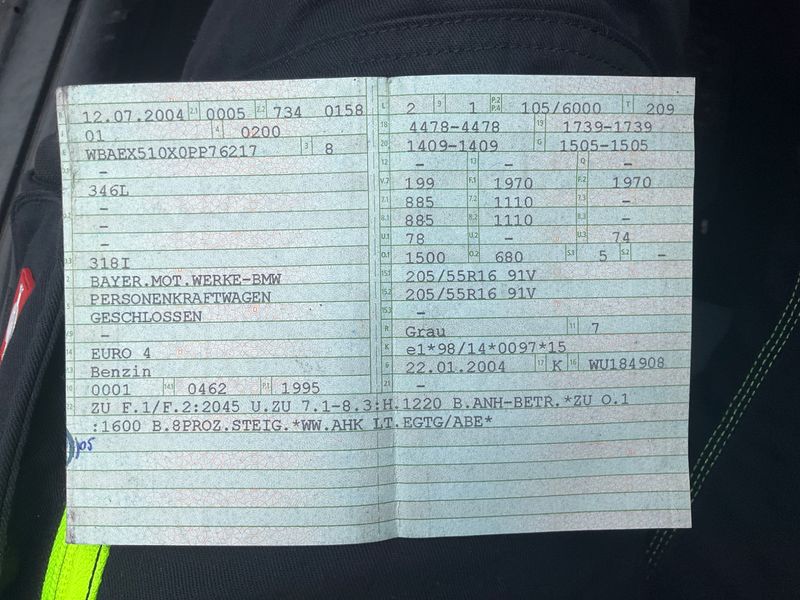 B 12.07.2004 2.1 0005 2.2 734 0158
J 01 4 0200
E WBAEX510X0PP76217 3 8
–
346L
–
–
–
D.3 318I
2 BAYER.MOT.WERKE-BMW
PERSONENKRAFTWAGEN
5 GESCHLOSSEN
V.9 –
14 EURO 4
P.3 Benzin
10 0001 14.1 0462 P.1 1995
L 2 9 1 P.2 P.4 105/6000 T 209
18 4478-4478 19 1739-1739
20 1409-1409 G 1505-1505
12 – 13 – Q –
V.7 199 F.1 1970 F.2 1970
7.1 885 7.2 1110 7.3 –
8.1 885 8.2 1110 8.3 –
U.1 78 U.2 – U.3 74
O.1 1500 O.2 680 S.1 5 S.2 –
15.1 205/55R16 91V
15.2 205/55R16 91V
15.3 –
R Grau 11 7
K e1*98/14*0097*15
6 22.01.2004 17 K 16 WU184908
21 –
22 ZU F.1/F.2:2045 U.ZU 7.1-8.3:H.1220 B.ANH-BETR.*ZU O.1
:1600 B.8PROZ.STEIG.*WW.AHK LT.EGTG/ABE*